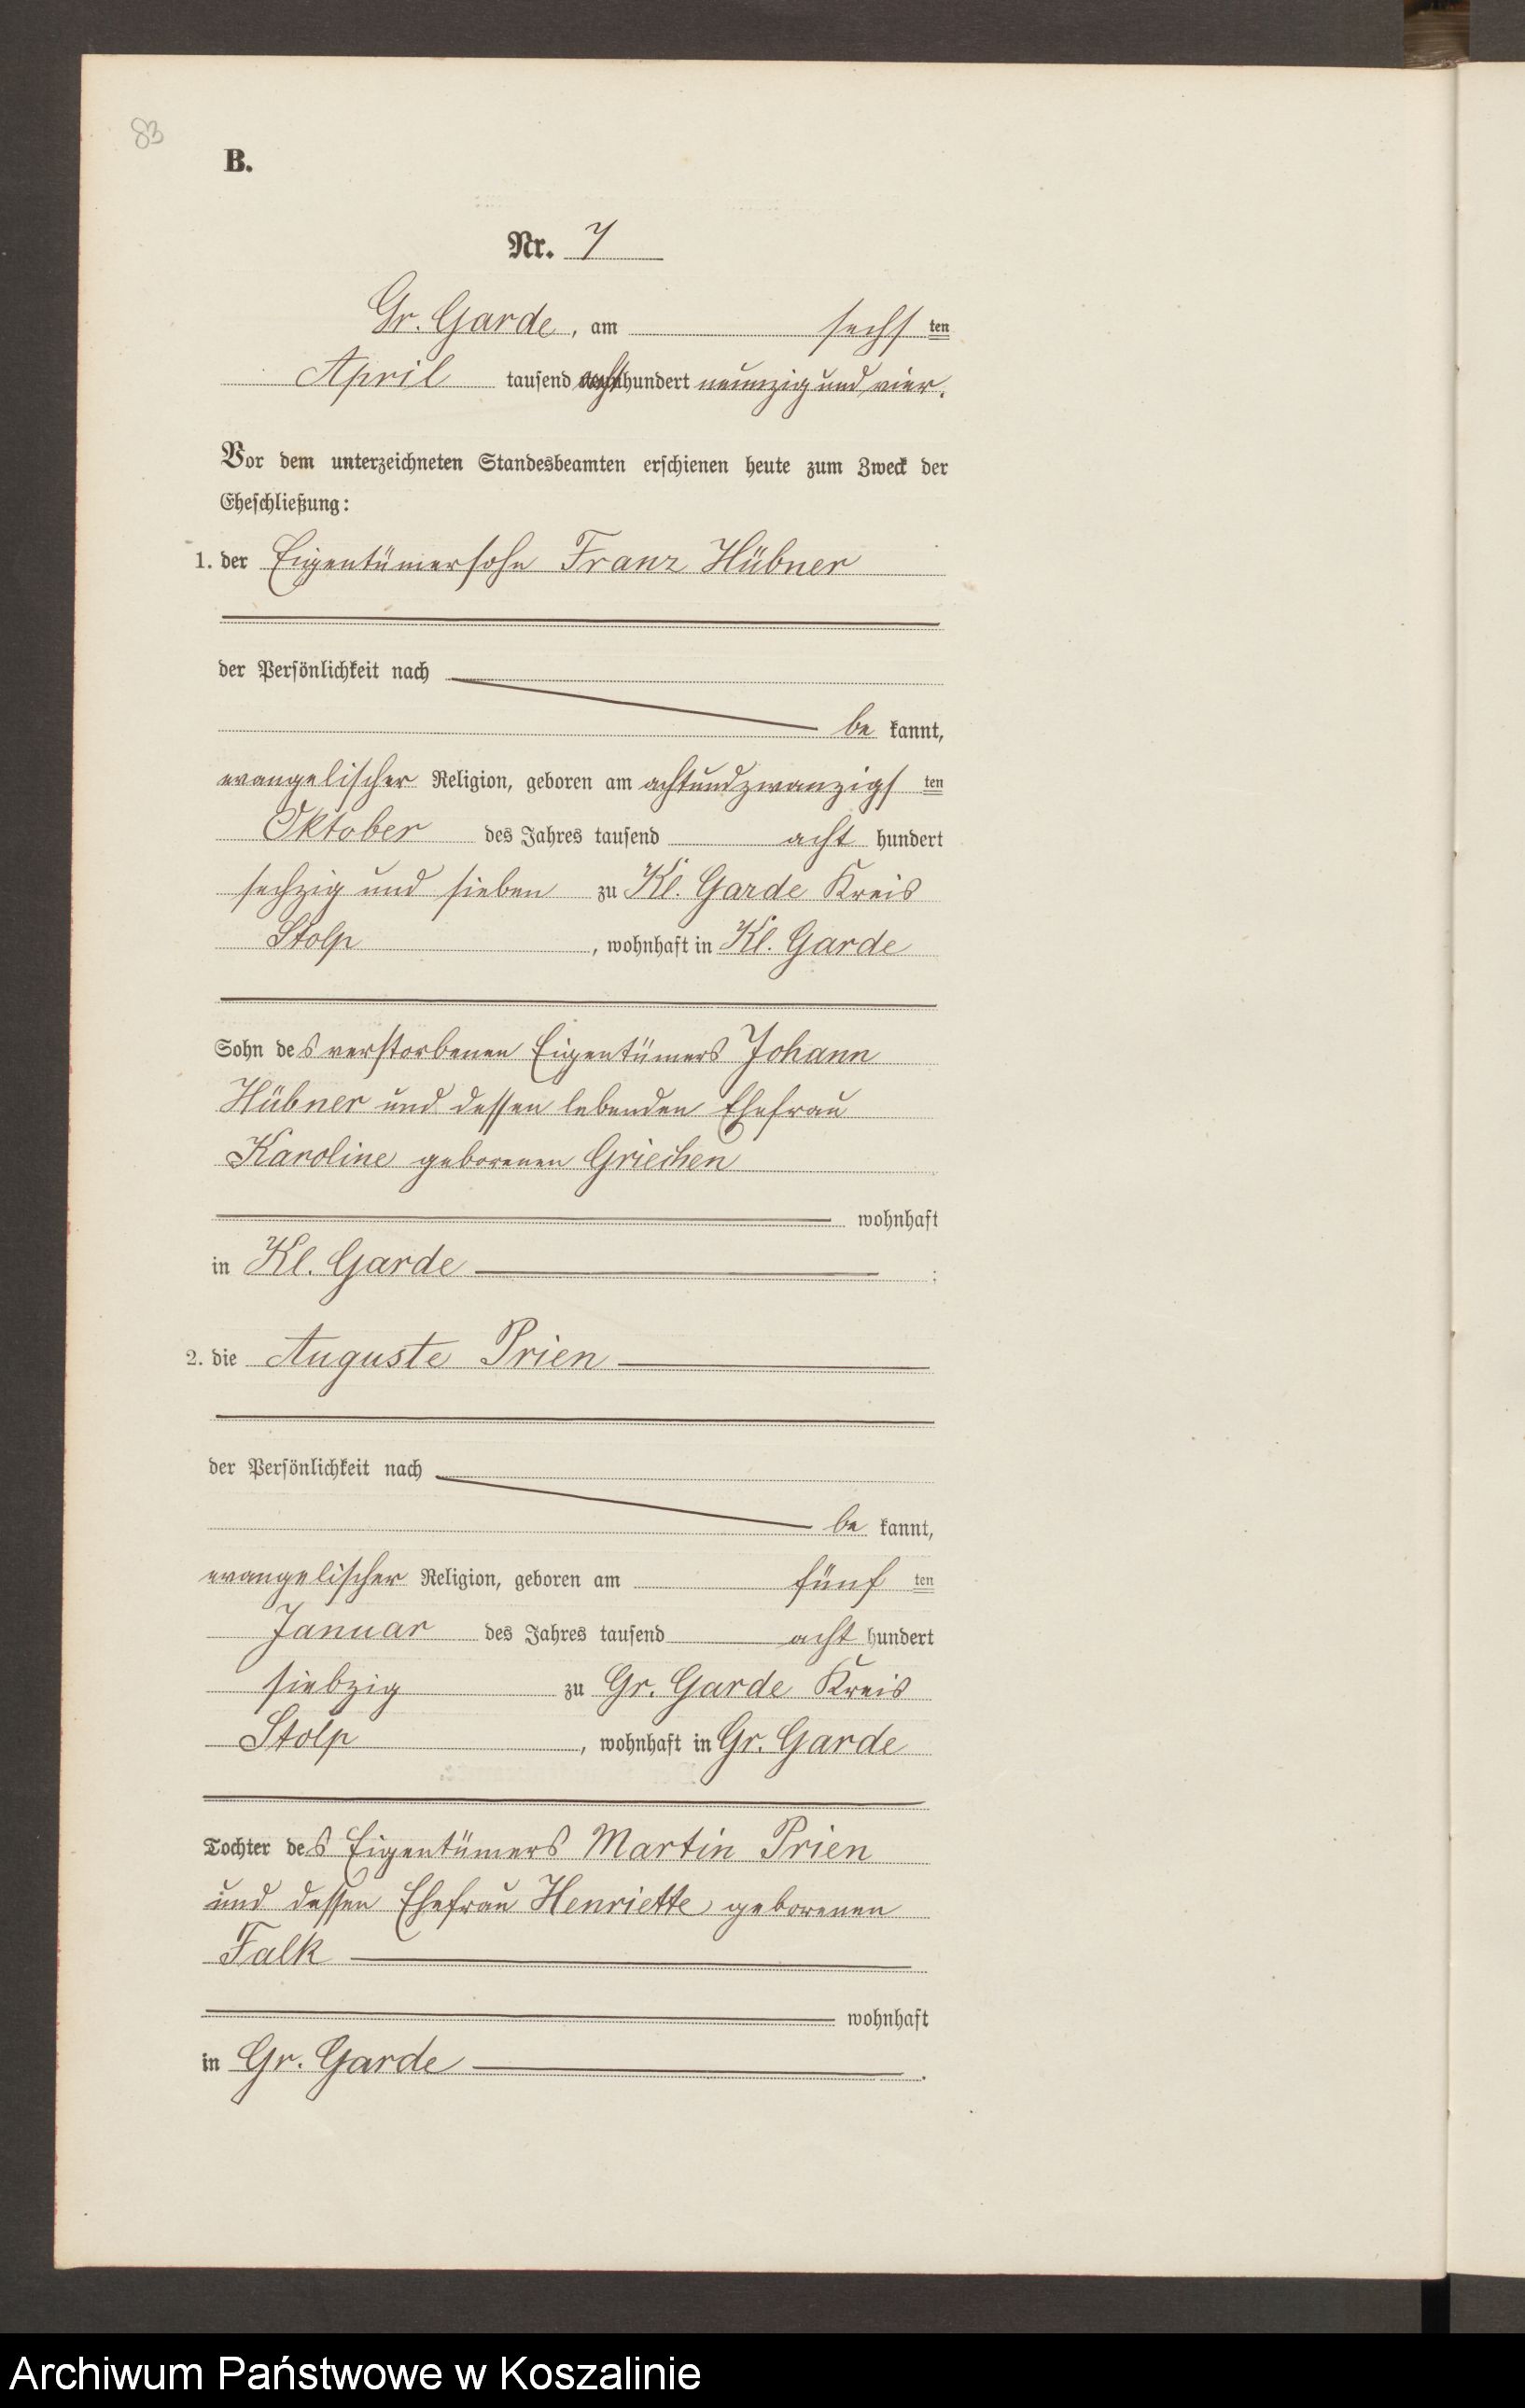 83
B.
Nr. 7
Gr. Garde, am sechs ten
April tausend achthundert neunzig und vier.
Vor dem unterzeichneten Standesbeamten erschienen heute zum Zweck der
Eheschließung:
1. der Eigentümersohn Franz Hübner
der Persönlichkeit nach
be kannt,
evangelischer Religion, geboren am achtundzwanzigs ten
Oktober des Jahres tausend acht hundert
sechzig und sieben zu Kl. Garde Kreis
Stolp, wohnhaft in Kl. Garde
Sohn des verstorbenen Eigentümers Johann
Hübner und dessen lebenden Ehefrau
Karoline geborenen Griechen
wohnhaft
in Kl. Garde ;
2. die Auguste Prien
der Persönlichkeit nach
be kannt,
evangelischer Religion, geboren am fünf ten
Januar des Jahres tausend acht hundert
siebzig zu Gr. Garde Kreis
Stolp, wohnhaft in Gr. Garde
Tochter des Eigentümers Martin Prien
und dessen Ehefrau Henriette geborenen
Falk
wohnhaft
in Gr. Garde .
Archiwum Państwowe w Koszalinie